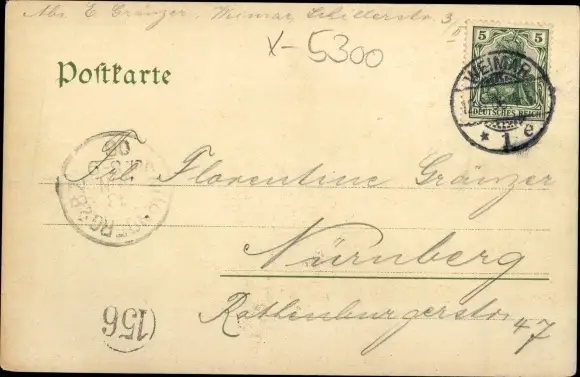 Abs. E. Gränzer, Weimar, Schillerstr. 3/II
X-5300
5 5
DEUTSCHES REICH
WEIMAR
* 1 e
Postkarte
Frl. Florentine Gränzer
Nürnberg
Rothenburgerstr. 47
(156)